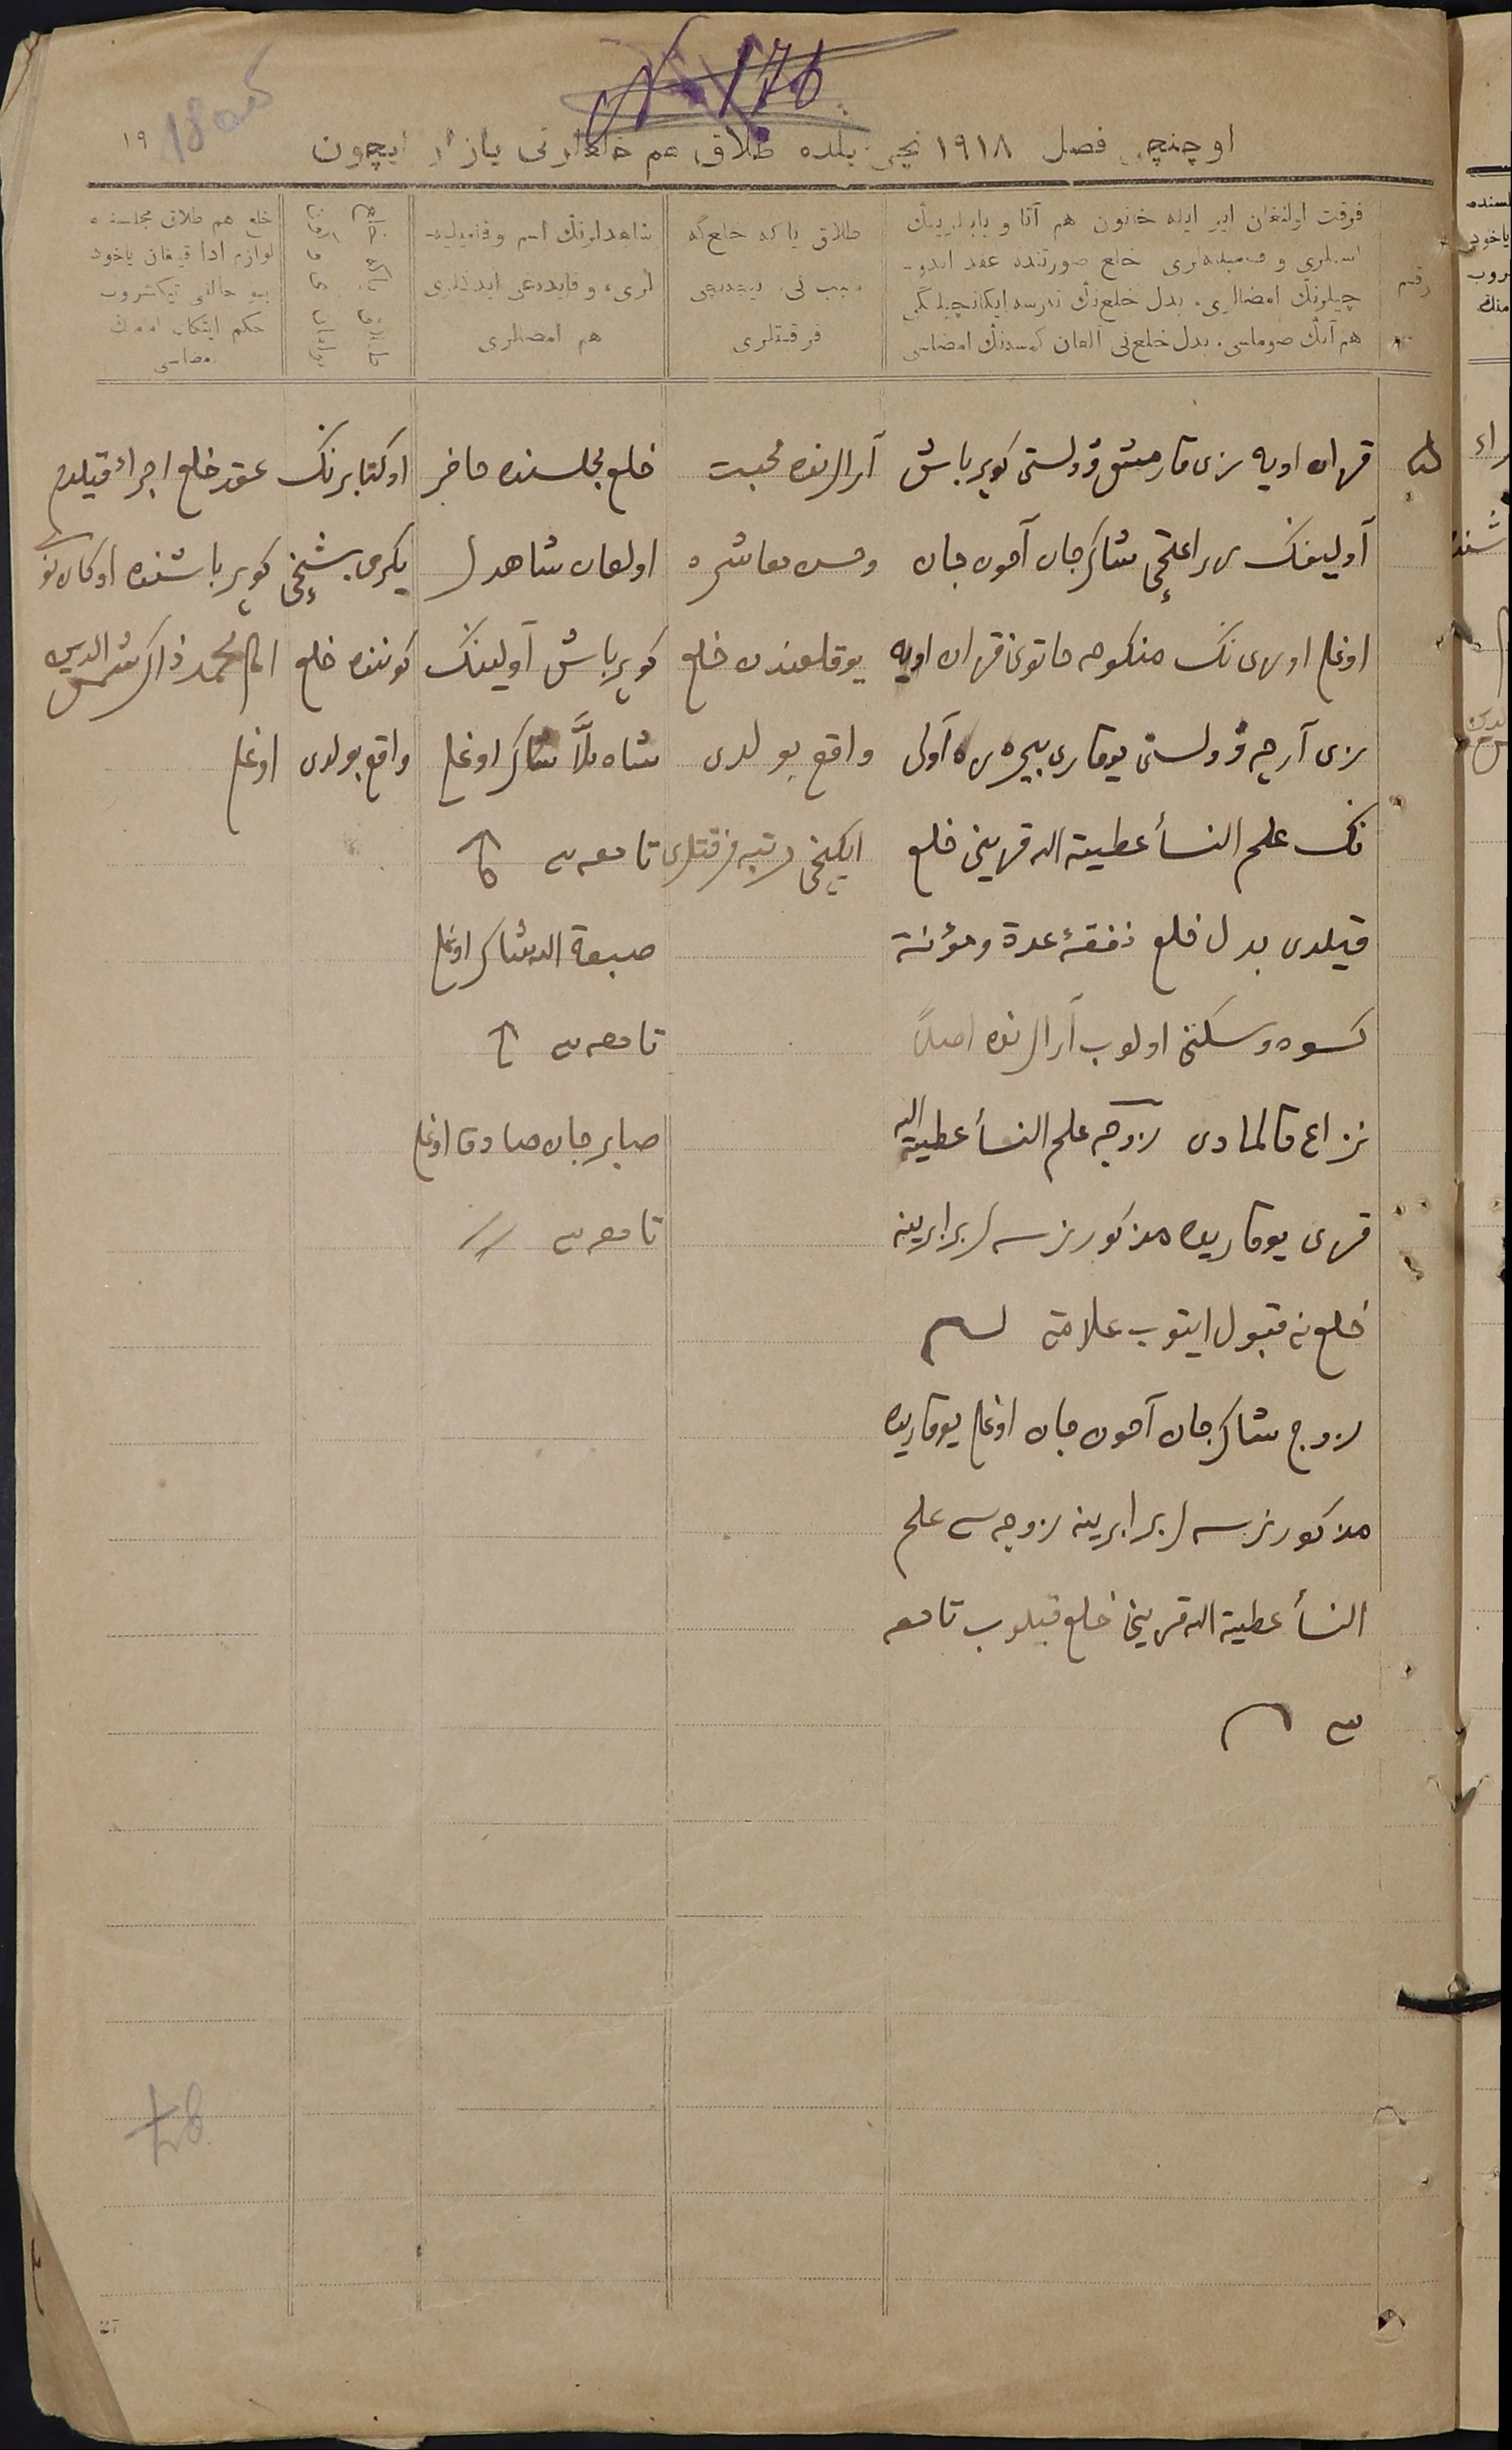 № 176
180
١٩
اوچنچی فصل ١٩١٨ نچی یلده طلاق هم خلعلرنی یازار ایچون
رقم
فرقت اولنغان ایر ایله خاتون هم آتا و بابالرینڭ
اسملری و فامیلیەلری خلع صورتنده عقد ایدو-
چیلرنڭ امضالری. بدل خلعنڭ نەرسه ایکانچیلگی
هم آنڭ صوماسی. بدل خلعنی آلغان کمسەنڭ امضاسی
طلاق یاکه خلع‌گه
سبب نی. نیچەنچی
فرقتلری
شاهدلرنڭ اسم و فامیلیە-
لری، و قایدەغی ایدکلری
هم امضالری
خلع هم طلاق مجلسنده
لوازم ادا قیلغان یاخود
بو حالنی تیکشروب
حکم ایتکان امامنڭ
امضاسی
قزان اویەزی قارمش وولستی کویرباش
آولینڭ شاکرجان آحون جان
اوغلی اوزی نڭ منکوحه خاتونی قزان اویه
زی آرچه وولستی یوقاری بیرەزه آولی
نڭ علم النسأ عطیة الله قزینی خلع
قیلدی بدل خلع نفقۀ عدة و مؤنة
کسوه و سکنی اولوب آرالرنده اصلاً
نزاع قالمادی زوجه علم النسأ عطیة الله
قزی یوقاریده مذکور نرسه لر برابرینه
خلع نی قبول ایتوب علامتی
زوج شاکرجان آحون جان اوغلی یوقاریده
مذکور نرسه لر برابرینه زوجه سی علم
النسأ عطیة الله قزینی خلع قیلوب تامغه
سی
آرالرنده محبت
و حسن معاشره
یوقلغندن خلع
واقع بولدی
ایکنچی مرتبه فرقتلری
خلع مجلسنده حاضر
اولغان شاهدلر
کویرباش آولینڭ
شاه ملّا شاکر اوغلی
تامغه سی
صبغة الله شاکر اوغلی
تامغه سی
صابرجان صادق اوغلی
تامغه سی //
اوکتابرنڭ
یکرمی بشنچی
کوننده خلع
واقع بولدی
عقد خلع اجراء قیلدم
کویرباشنده اوکازنو
امام محمد ذاکر شمس الدین
اوغلی
27